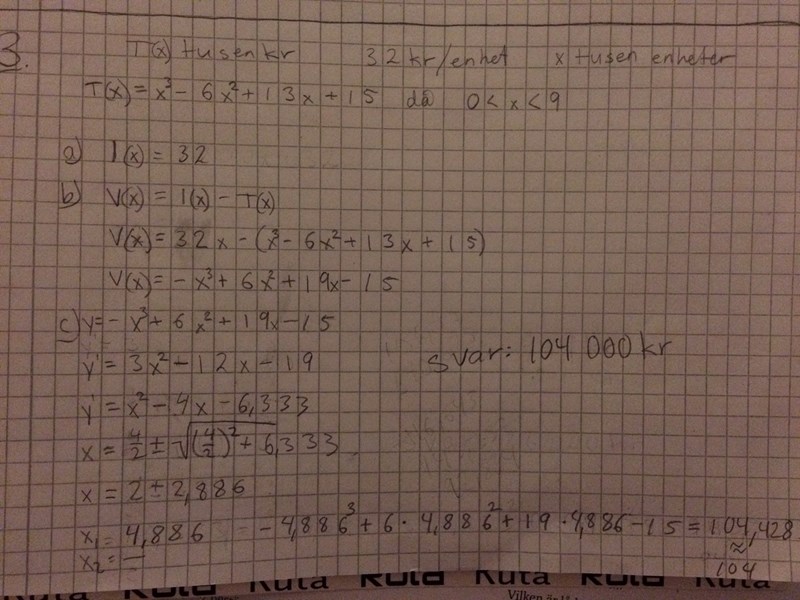 3.
T(x) tusen kr 32 kr/enhet x tusen enheter
T(x) = x³ - 6x² + 13x + 15 då 0 < x < 9
a) I(x) = 32
b) V(x) = I(x) - T(x)
V(x) = 32x - (x³ - 6x² + 13x + 15)
V(x) = - x³ + 6x² + 19x - 15
c) y = - x³ + 6x² + 19x - 15
y' = 3x² - 12x - 19
svar: 104 000 kr
y' = x² - 4x - 6,333
x = 4/2 ± √(4/2)² + 6,333
x = 2 ± 2,886
x₁ = 4,886 - 4,886³ + 6 · 4,886² + 19 · 4,886 - 15 = 104,428
x₂ = —
≈
104
Ruta Ruta Ruta Ruta Ruta
Vilken är